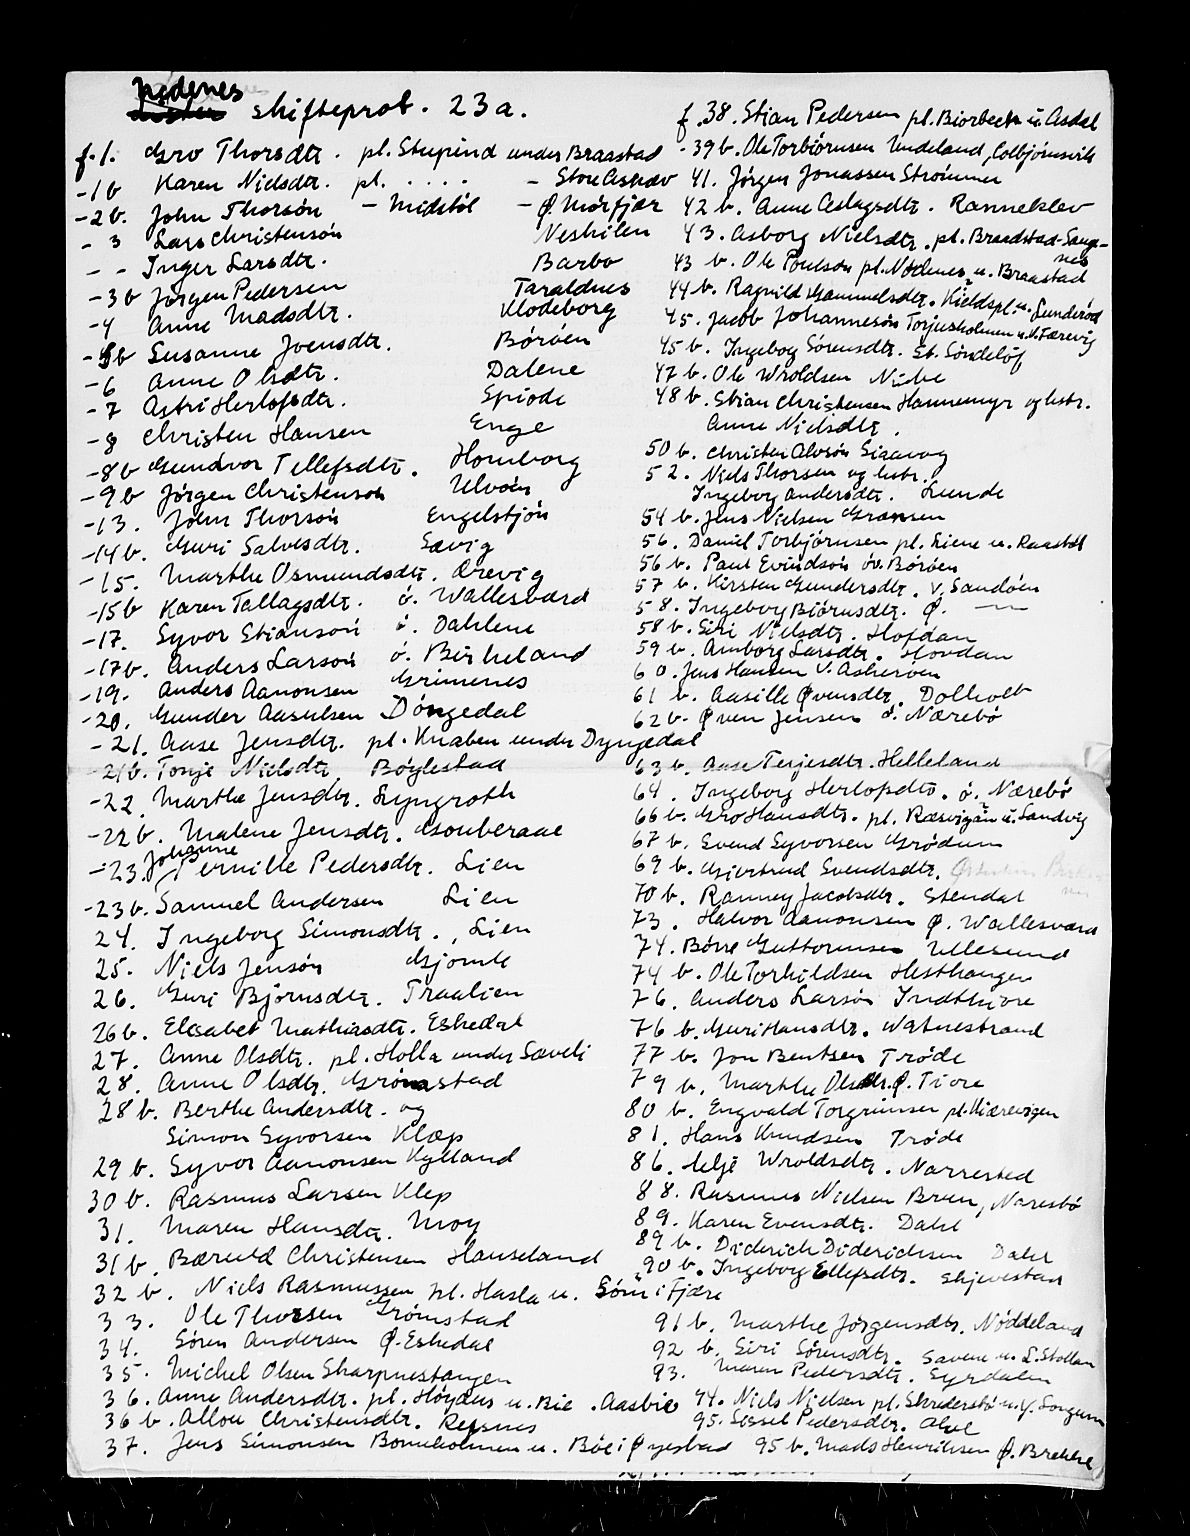 Nedenes
skifteprot. 23a.
f. 1. Gro Thorsdtr. pl. Stupind under Braastad
-1b Karen Nielsdtr. pl. . . . . - Store Askæv
-2b. John Thorsøn - Midstøl - Ø. Mørfjær
- 3 Lars Christensøn Neskilen
- - Inger Larsdtr. Barbo
-3b Jørgen Pedersen Taraldnes
-4 Anne Madsdtr. Klodeborg
-5b Susanne Joensdtr. Børøen
-6 Anne Olsdtr. Dalene
-7 Astri Herlofsdtr. Spiode
-8 Christen Hansen Enge
-8b Gundvor Tellefsdtr. Homborg
-9b Jørgen Christensøn Ulvøen
-13. John Thorsøn Engelstjøn
-14b. Guri Salvesdtr. Sævig
-15. Marthe Osmundsdtr. Ørevig
-15b Karen Tallagsdtr. ö. Wallesværd
-17. Syvor Stiansøn ö. Dahlene
-17b. Anders Larsøn ö. Birkeland
-19. Anders Aanonsen Grimenes
-20. Gunder Aasulsen Döngedal
-21. Aase Jensdtr. pl. Knaben under Dyngedal
-21b. Tonje Nielsdtr. Bøylestad
-22. Marthe Jensdtr. Lyngroth
-22b. Malene Jensdtr. Gouberaae
-23. Johanne Pernille Pedersdtr. Lien
-23b. Samuel Andersen Lien
24. Ingeborg Simonsdtr., Lien
25. Niels Jensøn Gjomle
26. Guri Bjørnsdtr. Traalien
26b. Elisabet Mathiasdtr. Eskedal
27. Anne Olsdtr. pl. Holla under Sæveli
28. Anne Olsdtr. Grømstad
28b. Berthe Andersdtr. og
Simon Syvorsen Klæp
29b. Syvor Aanonsen Kylland
30b. Rasmus Larsen Klep
31. Maren Hansdtr. Moy
31b. Bærul Christensen Hauseland
32b. Niels Rasmussen pl. Hasla u. Søm i Fjære
33. Ole Thorsen Grømstad
34. Søren Andersen Ø. Eskedal
35. Michel Olsen Skarpnestangen
36. Anne Andersdtr. pl. Høydens u. Bie. Aasbie
36b. Allou Christensdtr. Refsnes
37. Jens Simonsen Bomeholmen u. Böe i Øyestad
f. 38. Stian Pedersen pl. Biorbeck u. Asdal
-39b. Ole Torbiörnsen Undeland, Colbjörnsvik
41. Jörgen Jonassen Strømmer
42b. Anne Aslagsdtr. Ranneklev
43. Asborg Nielsdtr. pl. Braadstad-Sangnes
43b. Ole Poulsøn pl. Nødenes u. Braastad
44b. Ragnild Gammelsdtr. Kieldspl. u. Sunderød
45. Jacob Johannesøn Torjusholmen u. V. Færevig
45b. Ingebog Sørensdtr. St. Söndeløf
47b. Ole Wroldsen Nibe
48b. Stian Christensen Hannemyr og hstr.
Anne Nielsdtr.
50b. Christen Alvsøn Siaavog
52. Niels Thorsen og hstr.
Ingeborg Andersdtr. Lunde
54b. Jens Nielsen Gransen
56. Daniel Torbjørnsen pl. Liene u. Raastøl
56b. Paul Evindsøn öv. Børöen
57b. Kirsten Gundersdtr. v. Sandøen
58. Ingeborg Biørnsdtr. Ø. —
58b. Siri Nielsdtr. Hofdan
59b. Amborg Larsdtr. Hovdan
60. Jens Hansen V. Askerøen
61b. Aasille Øvensdtr. Dolholt
62b. Øven Jensen ö. Nærebö
63b. Aase Terjesdtr. Helleland
64. Ingeborg Herlofsdtr. ö. Nærebö
66b. Gro Hansdtr. pl. Ræsvigan u. Sandvig
67b. Evend Syvorsen Grødum
69b. Giertrud Svendsdtr.
70b. Ranney Jacobsdtr. Stendal
73. Halvor Aanonsen Ø. Wallesværd
74. Børre Guttormsen Ullesund
74b. Ole Torkildsen Hesthaugen
76. Anders Larsøn Indthiore
76b. Guri Hansdtr. Watnestrand
77b. Jon Bentsen Trøde
79b. Marthe Olsdtr. Ø. Tiore
80b. Engvald Torgrimsen pl. Kiærevigen
81. Hans Knudsen Trøde
86. Aslje Wroldsdtr. Narrested
88. Rasmus Nielsen Bruun, Naresbö
89. Karen Evensdtr. Dahl
89b. Diderich Diderichsen Dahl
90b. Ingeborg Ellefsdtr. Skjevestad
91b. Marthe Jörgensdtr. Nøddeland
92b. Siri Sörensdtr. Savene u. L. Stollan
93. Maren Pedersdtr. Syrdalen
94. Niels Nielsen pl. Skrederstö u. Y. Songum
95. Sissel Pedersdtr. Alve
95b. Mads Henriksen Ø. Brekke